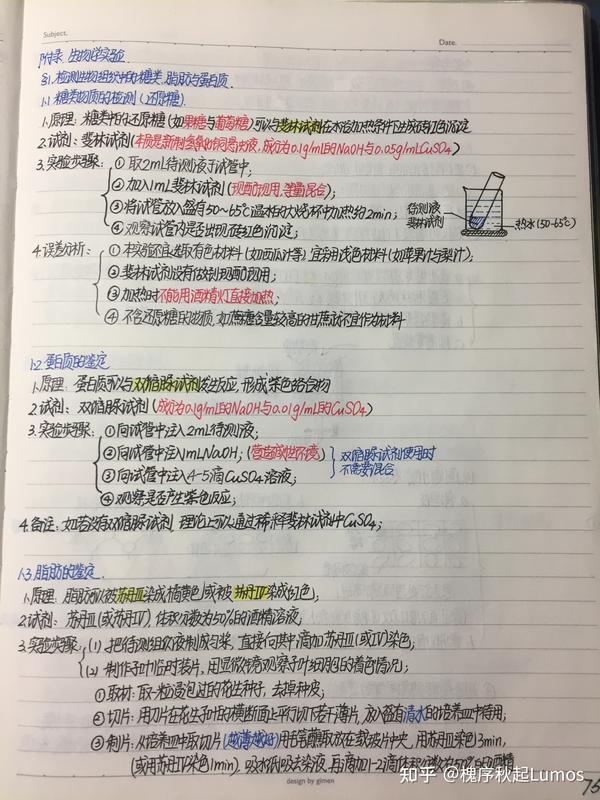 Subject.
Date.
附录. 生物学实验
§1. 检测生物组织中的糖类、脂肪与蛋白质.
1.1 糖类物质的检测 (还原糖).
1. 原理: 糖类中的还原糖 (如果糖与葡萄糖) 可以与斐林试剂在水浴加热条件下生成砖红色沉淀
2. 试剂: 斐林试剂 (本质是新制氢氧化铜悬浊液, 成分为0.1g/ml的NaOH与0.05g/ml CuSO4)
3. 实验步骤: ① 取2ml待测液于试管中;
② 加入1mL斐林试剂 (现配现用, 等量混合);
③ 将试管放入盛有50~65℃温水的大烧杯中加热约2min;
④ 观察试管内是否出现砖红色沉淀;
待测液
斐林试剂
热水(50-65℃)
4. 误差分析: ① 本实验不宜选取有色材料 (如西瓜汁等) 宜采用浅色材料 (如苹果汁与梨汁);
② 斐林试剂没有做到现配现用;
③ 加热时不能用酒精灯直接加热;
④ 不含还原糖的, 如蔗糖含量较高的甘蔗就不宜作为材料
1.2. 蛋白质的鉴定
1. 原理: 蛋白质可以与双缩脲试剂发生反应, 形成紫色络合物
2. 试剂: 双缩脲试剂 (成分为0.1g/ml的NaOH与0.01g/ml的CuSO4)
3. 实验步骤: ① 向试管中注入2ml待测液;
② 向试管中注入1mLNaOH; (营造碱性环境)
双缩脲试剂使用时
不需要混合
③ 向试管中注入4-5滴CuSO4溶液;
④ 观察是否产生紫色反应;
4. 备注: 如若没有双缩脲试剂, 理论上可以通过稀释斐林试剂中CuSO4;
1.3. 脂肪的鉴定
1. 原理: 脂肪可以被苏丹Ⅲ染成橘黄色 (或被苏丹Ⅳ染成红色);
2. 试剂: 苏丹Ⅲ (或苏丹Ⅳ), 体积分数为50%的酒精溶液;
3. 实验步骤: (1) 把待测组织液制成匀浆, 直接向其中滴加苏丹Ⅲ(或Ⅳ)染色;
(2) 制作子叶临时装片, 用显微镜观察子叶细胞的着色情况;
① 取材: 取一粒浸泡过的花生种子, 去掉种皮;
② 切片: 用刀片在花生子叶的横断面上平行切下若干薄片, 放入盛有清水的培养皿中待用;
③ 制片: 从培养皿中取切片 (越薄越好) 用毛笔蘸取放在载玻片中央, 用苏丹Ⅲ染色3min,
(或用苏丹Ⅳ染色1min). 吸水纸吸去染液, 再滴加1-2滴体积分数为50%的酒精
design by gimen
知乎 @槐序秋起Lumos
75